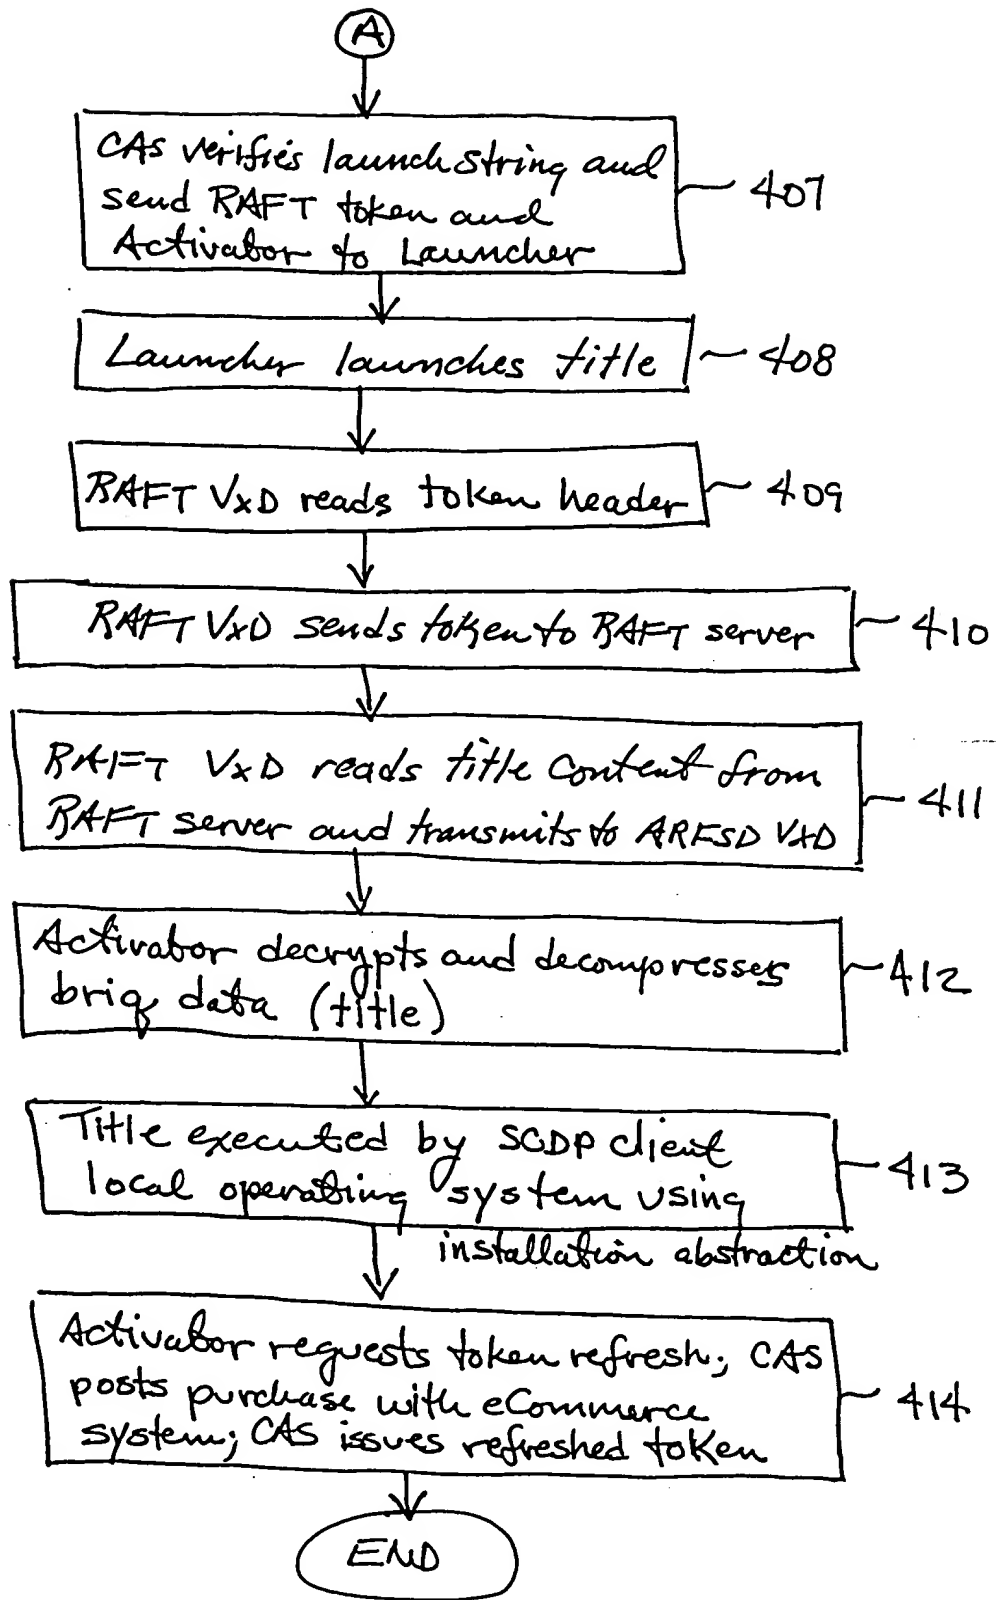 A
CAS verifies launch string and
send RAFT token and
Activator to Launcher
407
Launcher launches title
408
RAFT VxD reads token header
409
RAFT VxD sends token to RAFT server
410
RAFT VxD reads title content from
RAFT server and transmits to ARFSD VXD
411
Activator decrypts and decompresses
briq data (title)
412
Title executed by SCDP client
local operating system using
installation abstraction
413
Activator requests token refresh; CAS
posts purchase with eCommerce
system; CAS issues refreshed token
414
END